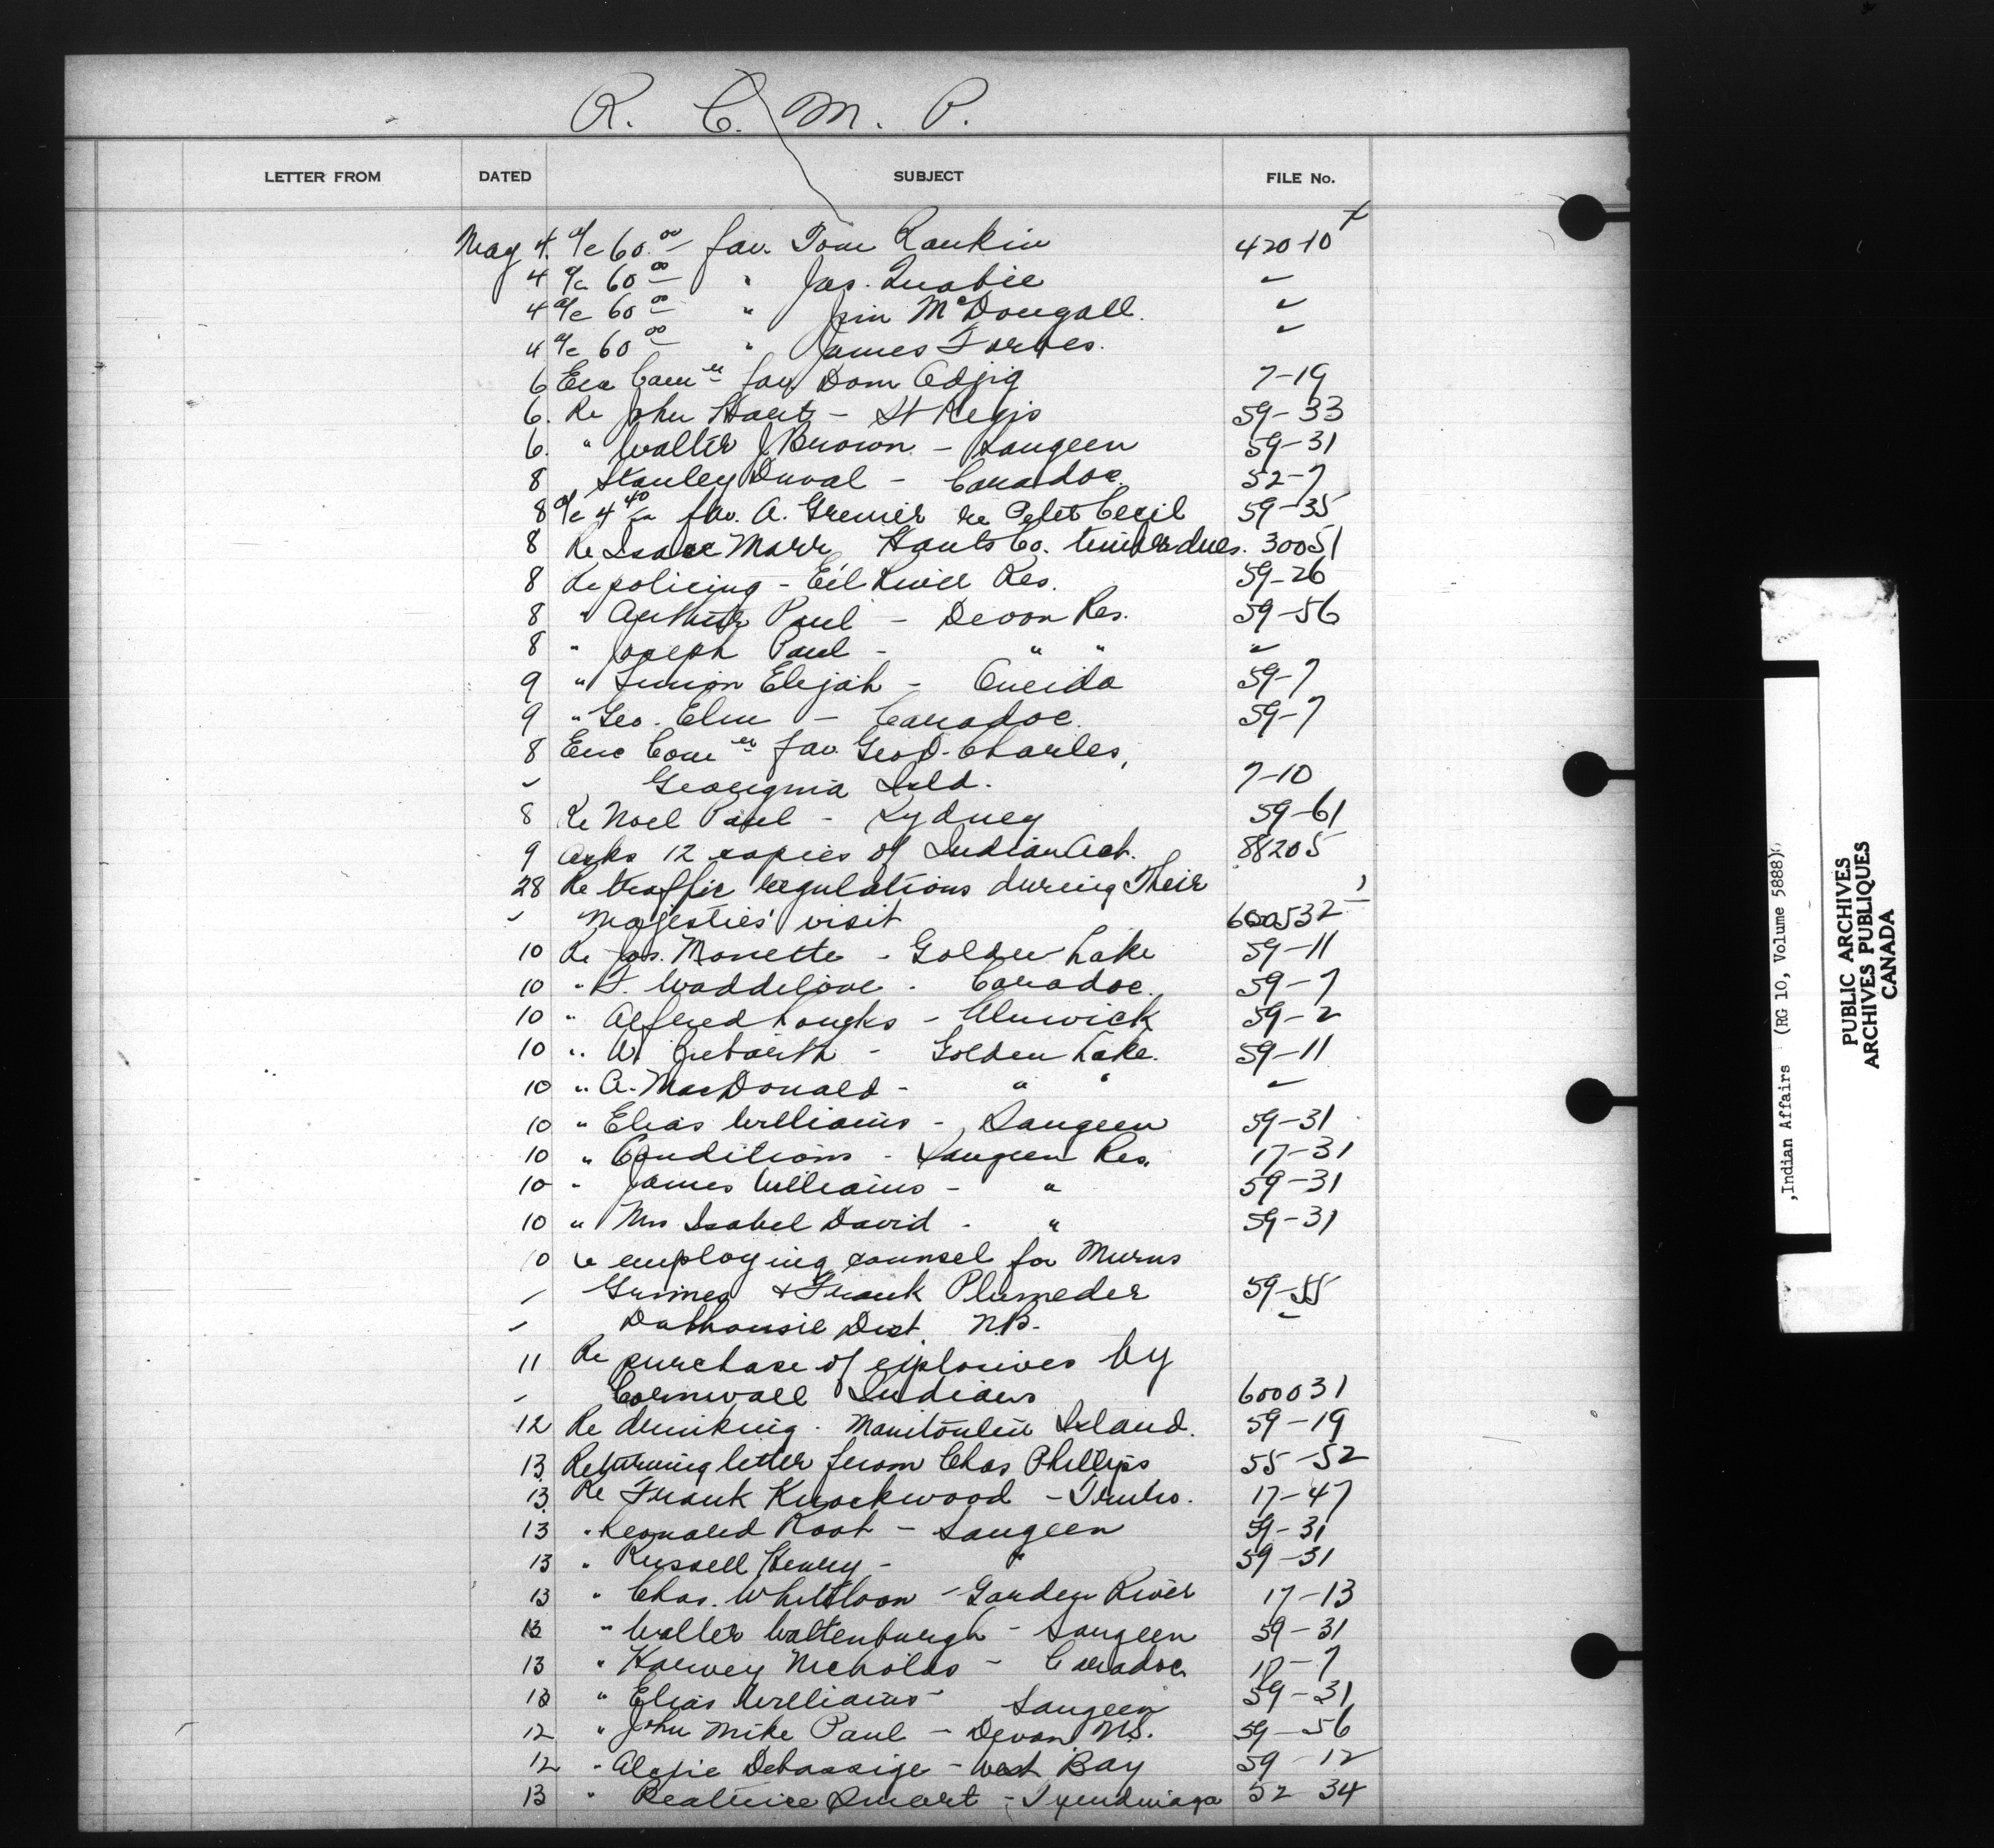 R. C. M. P.
LETTER FROM DATED SUBJECT FILE No.
May 4. a/c 60.00 fav. Tom Rankin 420-10 x
4 a/c 60 00 " Jas. Quabie "
4 a/c 60 00 " Jim McDougall. "
4 a/c 60 00 " James Forbes. "
6 Enc Com er fav. Dom Odjig 7-19
6. Re John - St Regis 59-33
6. " Walter J Brown - Saugeen 59-31
8 Stanley Duval - Caradoc. 52-7
8 a/c 4 40 fav. A. Grenier re Peter Cecil 59-35
8 Re Isaac Marr, Hants Co. timber dues. 30051
8 Re policing - Eel River Res. 59-26
8 " Arthur Paul - Devon Res. 59-56
8 " Joseph Paul - " " "
9 " Simion Elijah - Oneida 59-7
9 " Geo. Elm - Caradoc. 59-7
8 Enc Com er fav. Geo D. Charles,
" Georgina Isld. 7-10
8 Re Noel Paul - Sydney 59-61
9 Asks 12 copies of Indian Act. 88205
28 Re traffic regulations during Their
" Majesties' visit 600532
10 Re Jas. Monette - Golden Lake 59-11
10 " F. Waddilove - Caradoc. 59-7
10 " Alfred Loucks - Alnwick 59-2
10 " W. - Golden Lake. 59-11
10 " A. MacDonald - " " "
10 " Elias Williams - Saugeen 59-31
10 " Conditions - Saugeen Res. 17-31
10 " James Williams - " 59-31
10 " Mrs Isabel David - " 59-31
10 re employing counsel for
" Grimes & Frank Plumeder 59-55
" Dalhousie Dist. N.B. "
11 Re purchase of explosives by
" Cornwall Indians 600031
12 Re drinking - Manitoulin Island. 59-19
13 Returning letter from Chas Phillips 55-52
13 Re Frank Knockwood - Truro. 17-47
13 " Leonard Root - Saugeen 59-31
13 " Russell Henry - " 59-31
13 " Chas. Whiteloon - Garden River 17-13
13 " Walter Waltenburgh - Saugeen 59-31
13 " Harvey Nicholas - Caradoc 17-7
13 " Elias Williams - Saugeen 59-31
12 " John Mike Paul - Devon 59-56
12 " Debassige - West Bay 59-12
13 " Beatrice Smart - Tyendinaga 52 34
,Indian Affairs (RG 10, Volume 5888)
PUBLIC ARCHIVES
ARCHIVES PUBLIQUES
CANADA